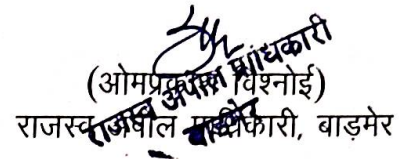 (ओमप्रकाश विश्नोई)
राजस्व अपील प्राधिकारी, बाड़मेर
राजस्व अपील प्राधिकारी
बाड़मेर